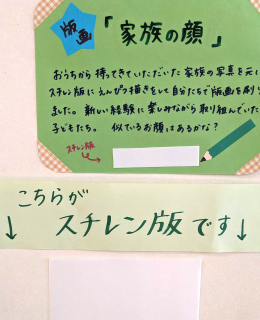 版画
「家族の顔」
おうちから持ってきていただいた家族の写真を元に
スチレン版にえんぴつ描きをして自分たちで版画を刷り
ました。新しい経験に楽しみながら取り組んでいた
子どもたち。似ているお顔はあるかな?
スチレン版
こちらが
↓ スチレン版です↓